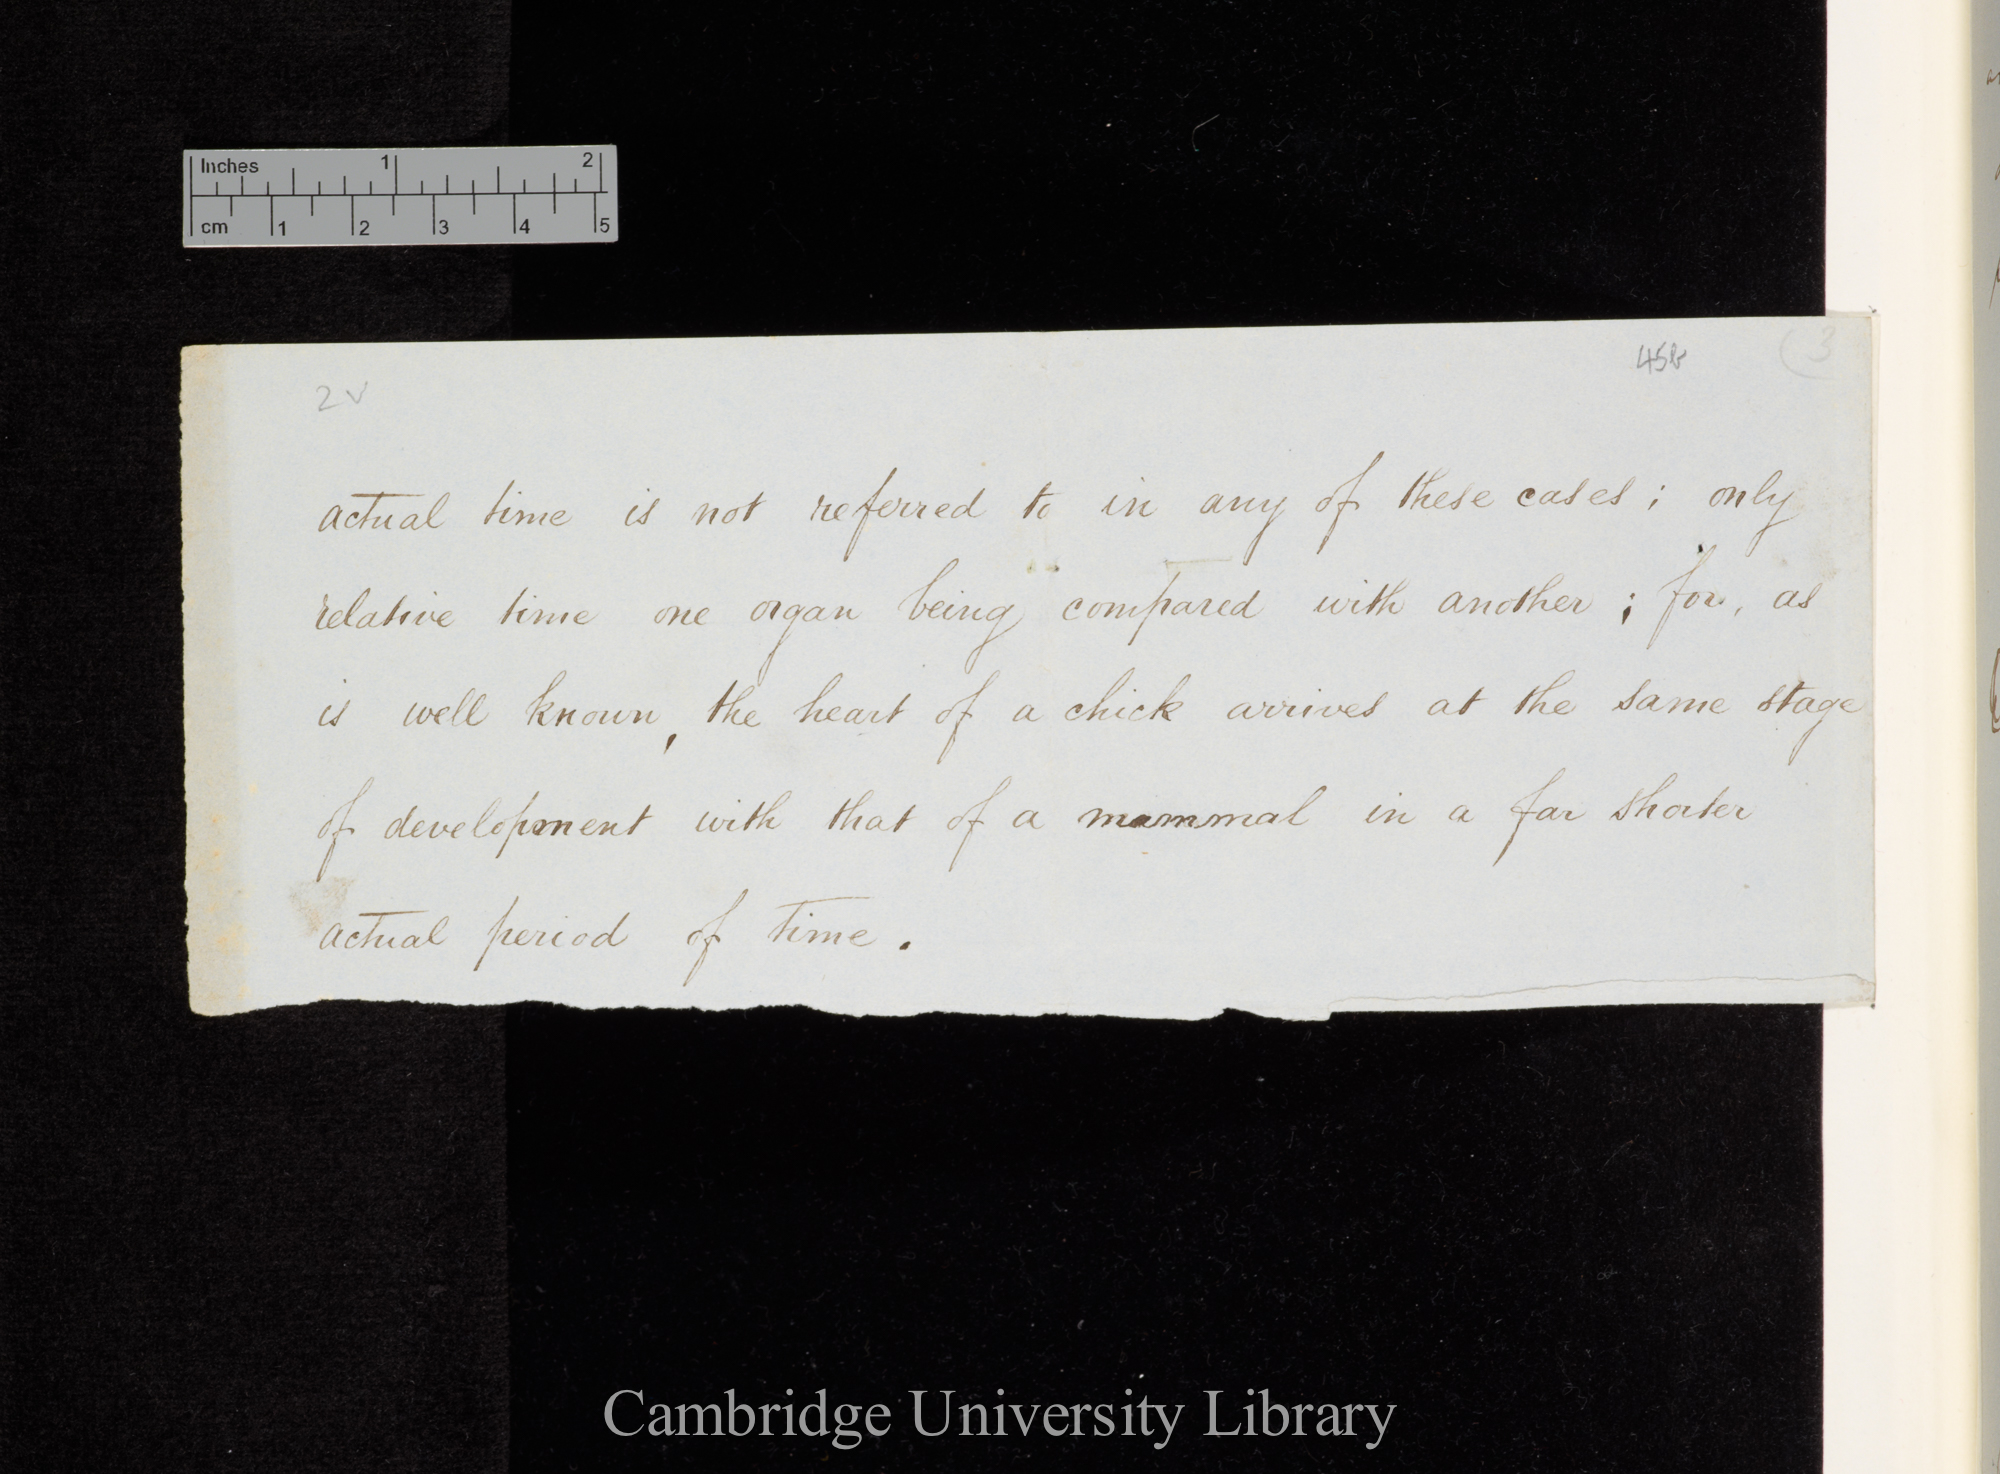 Inches 1 2
cm 1 2 3 4 5
2v 45b (3
actual time is not referred to in any of these cases; only
relative time one organ being compared with another; for, as
is well known, the heart of a chick arrives at the same stage
of development with that of a mammal in a far shorter
actual period of time.
Cambridge University Library